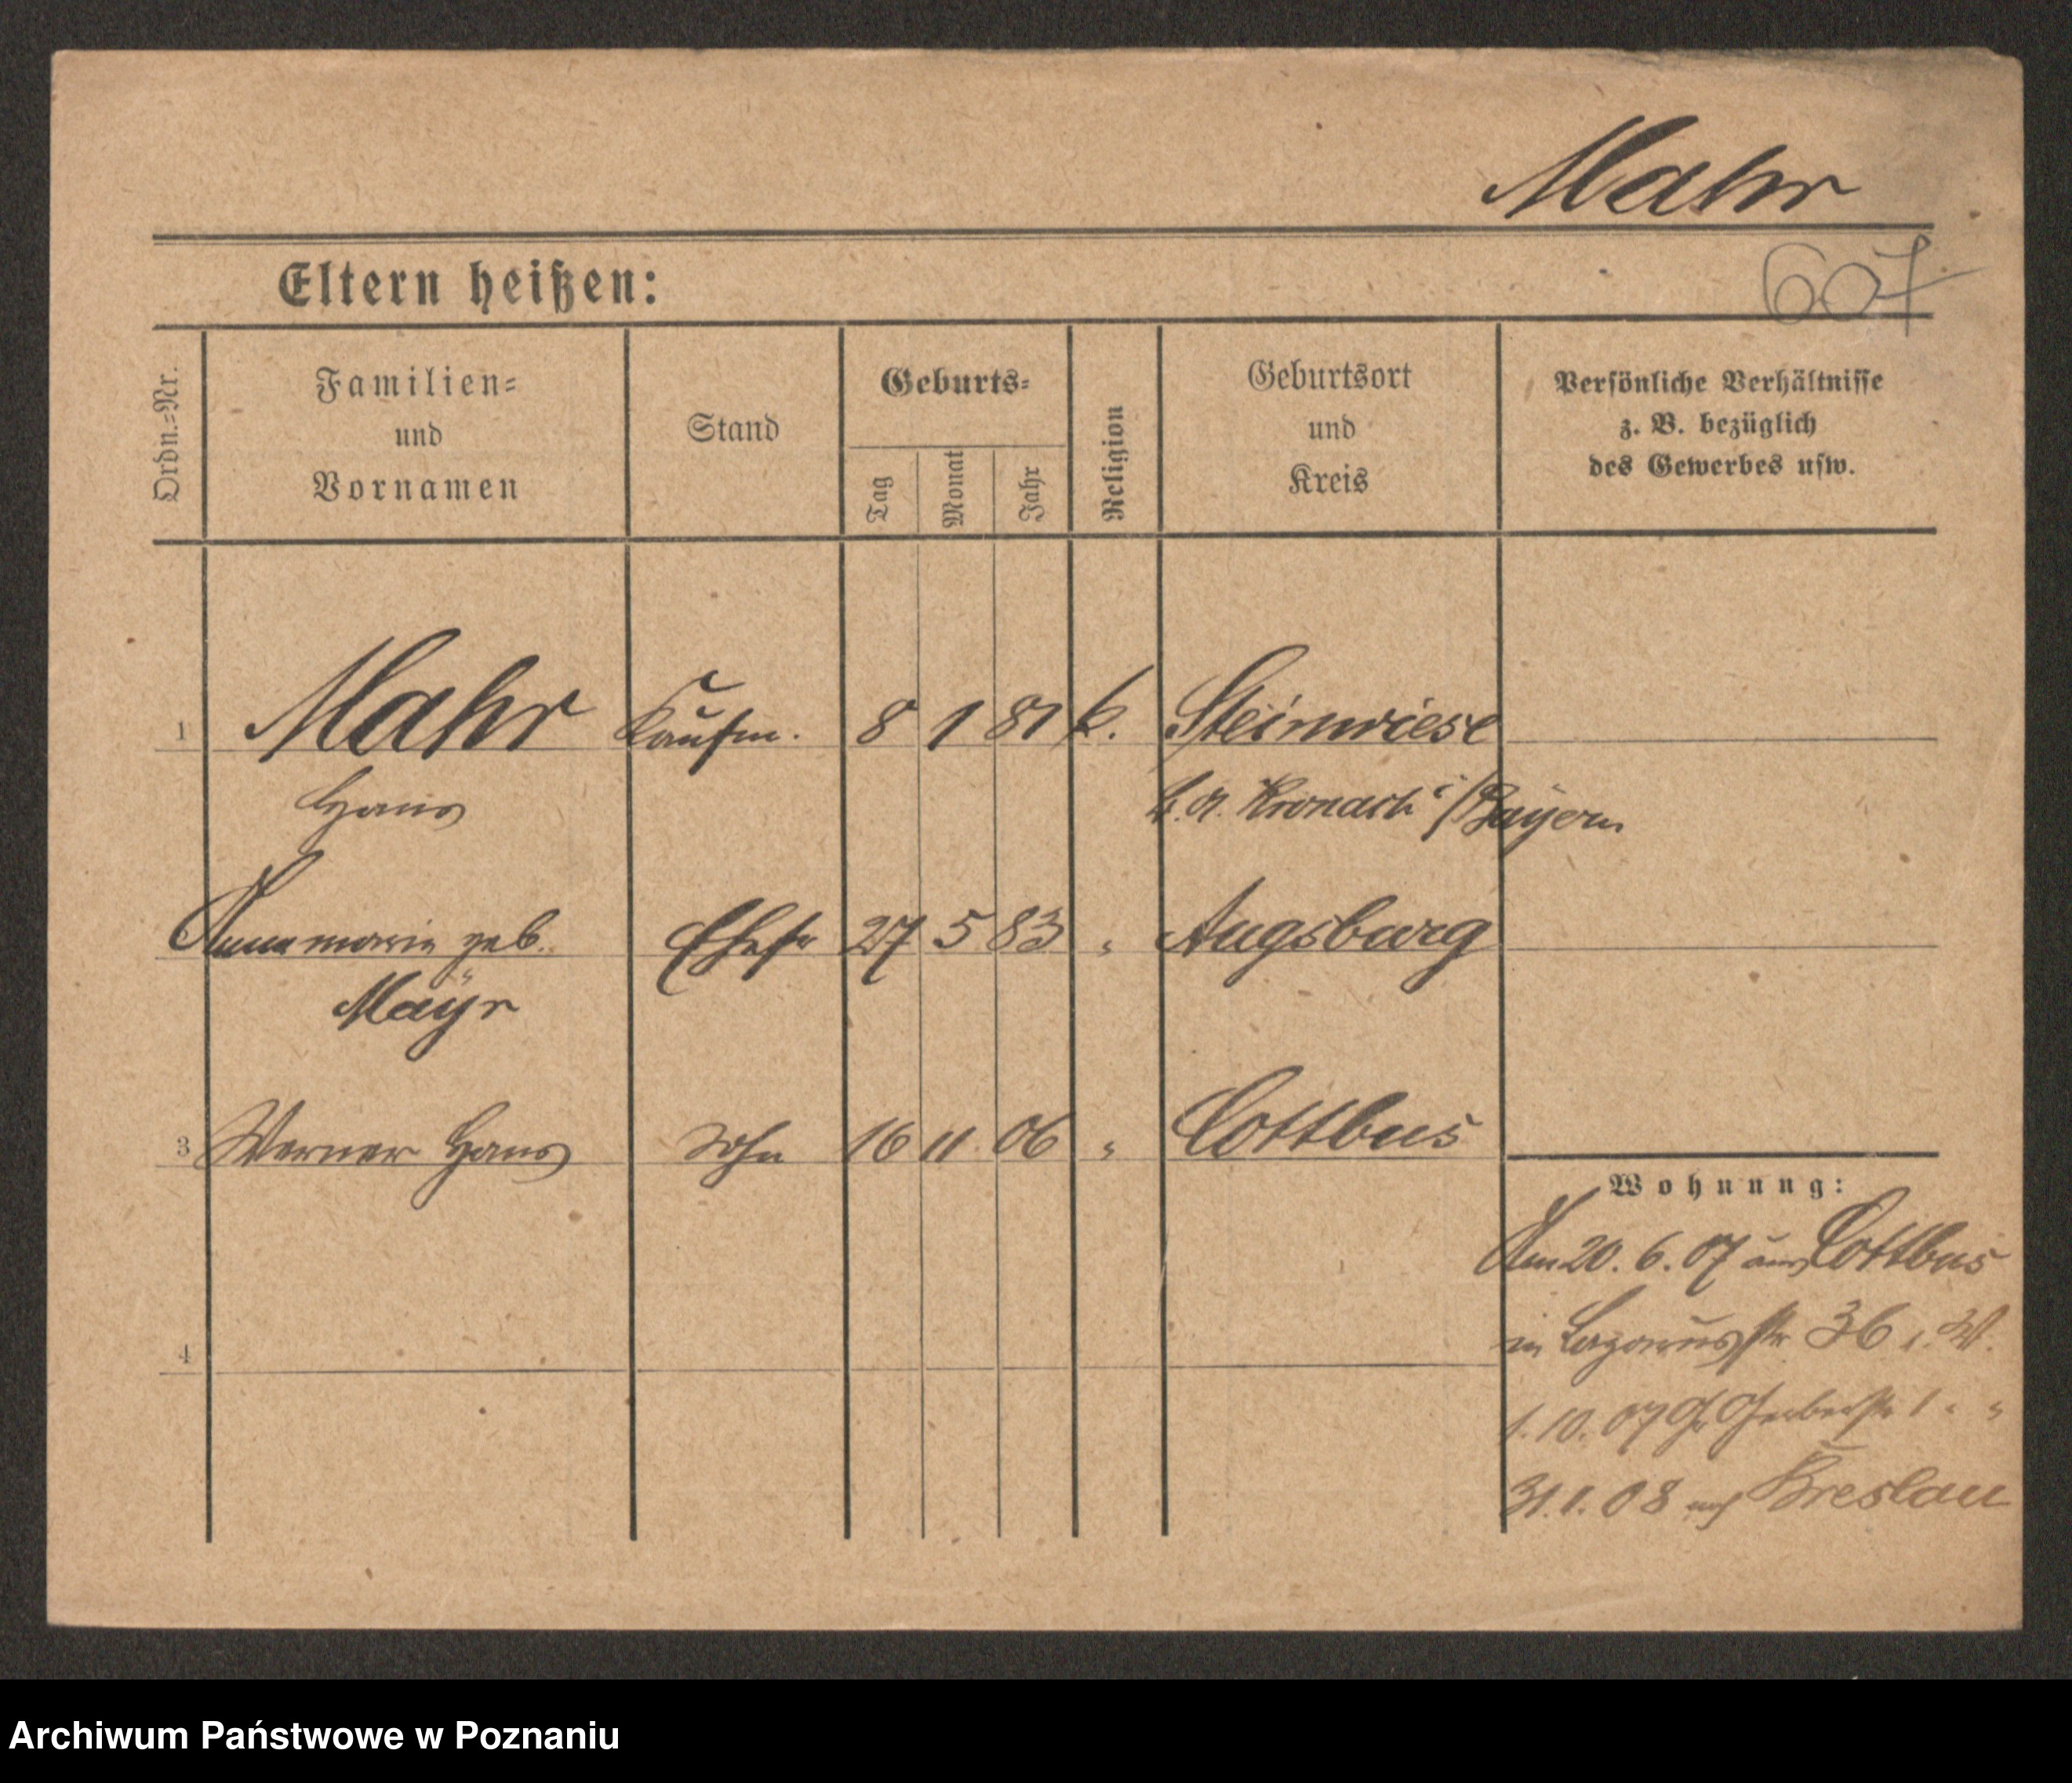 Mahr
607
Eltern heißen:
Ordn.=Nr.
Familien=
und
Vornamen
Stand
Geburts=
Tag
Monat
Jahr
Religion
Geburtsort
und
Kreis
Persönliche Verhältnisse
z. B. bezüglich
des Gewerbes usw.
1 Mahr Kaufm. 8 1 81 k. Steinwiese
Hans B. A. Kronach i/Bayern
Annamarie geb. Ehefr 27 5 83 " Augsburg
Mayr
3 Werner Hans Sohn 16 11 06 " Cottbus
Wohnung:
Am 20. 6. 07 aus Cottbus
in Lazarusstr 36 b. W.
4
1. 10. 07 Gr Gerberstr 1 " "
31. 1. 08 nach Breslau
Archiwum Państwowe w Poznaniu